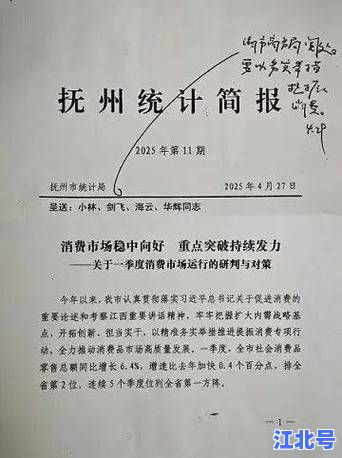 抚州统计简报
2025年第11期
抚州市统计局
2025年4月27日
呈送：小林、剑飞、海云、华辉同志
消费市场稳中向好 重点突破持续发力
——关于一季度消费市场运行的研判与对策
今年以来，我市认真贯彻落实习近平总书记关于促进消费的
重要论述和考察江西重要讲话精神，牢牢把握扩大内需战略基
点，开拓创新、担当实干，以精准务实举措推进提振消费专项行
动，全力推动消费品市场高质量发展。一季度，全市社会消费品
零售总额同比增长6.4%，增速比去年加快0.4个百分点，排全
省第2位，连续5个季度位列全省第一方阵。
— 1 —
江北号